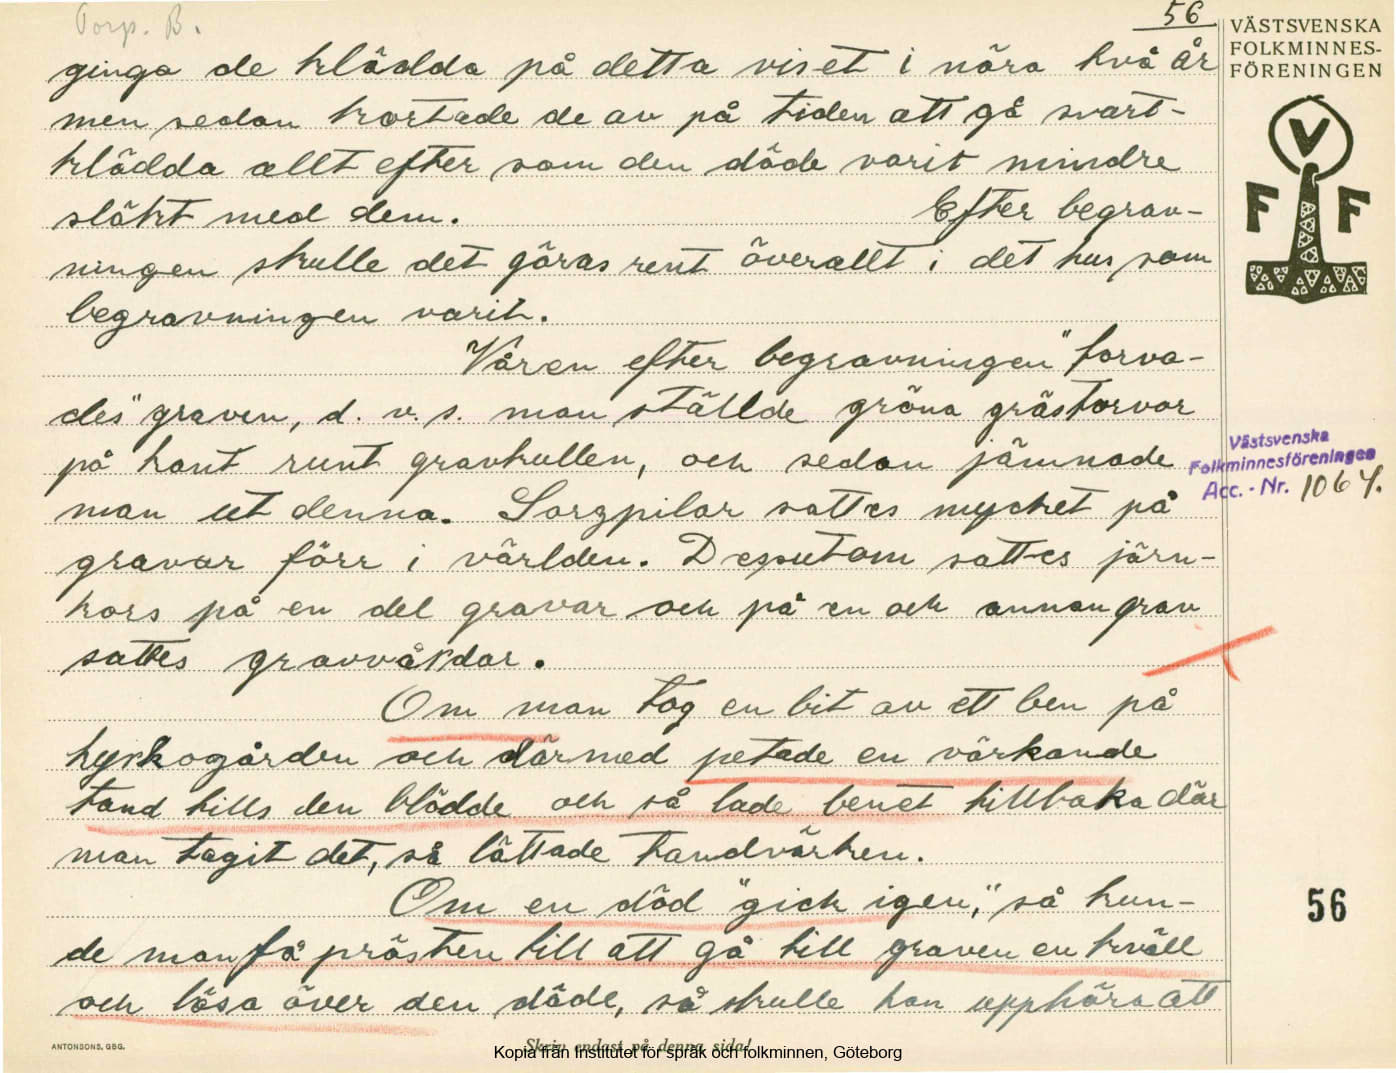 Torp. B.
56
VÄSTSVENSKA
FOLKMINNES-
FÖRENINGEN
V
F F
ginga de klädda på detta viset i nära två år
men sedan kortade de av på tiden att gå svart-
klädda allt efter som den döde varit mindre
släkt med dem. Efter begrav-
ningen skulle det göras rent överallt i det hus som
begravningen varit.
Våren efter begravningen "torva-
des" graven, d. v. s. man ställde gröna grästorvor
på kant runt gravkullen, och sedan jämnade
man ut denna. Sorgpilar sattes mycket på
gravar förr i världen. Dessutom sattes järn-
kors på en del gravar och på en och annan grav
sattes gravvårdar.
Västsvenska
Folkminnesföreningen
Acc. - Nr. 1067.
Om man tog en bit av ett ben på
kyrkogården och därmed petade en värkande
tand tills den blödde och så lade benet tillbaka där
man tagit det, så lättade tandvärken.
Om en död "gick igen", så kun-
de man få prästen till att gå till graven en kväll
och läsa över den döde, så skulle han upphöra att
56
ANTONSONS, GBG.
Skriv endast på denna sida!
Kopia från Institutet för språk och folkminnen, Göteborg